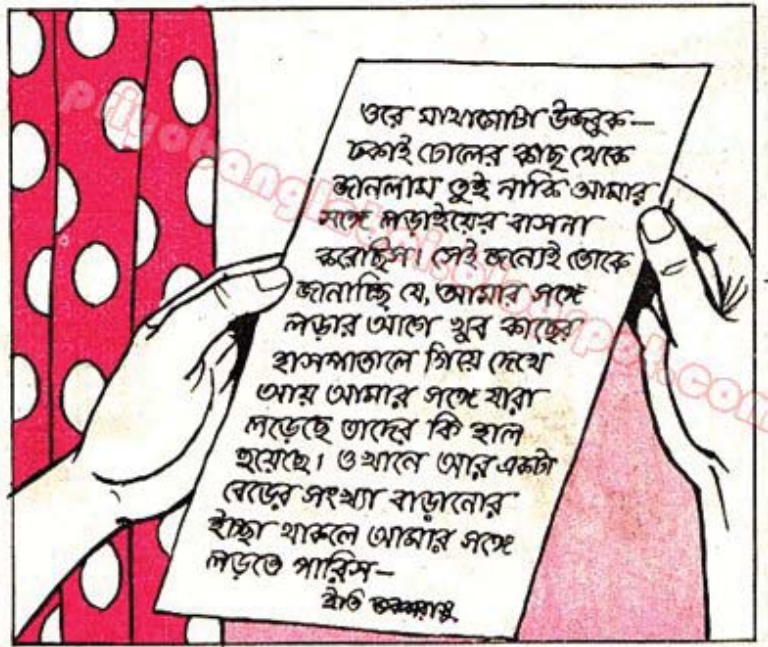 ওরে মাথামোটা উজবুক—
ঢকাই ঢোলের কাছ থেকে
জানলাম তুই নাকি আমার
সঙ্গে লড়াইয়ের বাসনা
করেছিস। সেই জন্যেই তোকে
জানাচ্ছি যে, আমার সঙ্গে
লড়ার আগে খুব কাছের
হাসপাতালে গিয়ে দেখে
আয় আমার সঙ্গে যারা
লড়েছে তাদের কি হাল
হয়েছে। ওখানে আর একটা
বেডের সংখ্যা বাড়ানোর
ইচ্ছা থাকলে আমার সঙ্গে
লড়তে পারিস—
ইতি